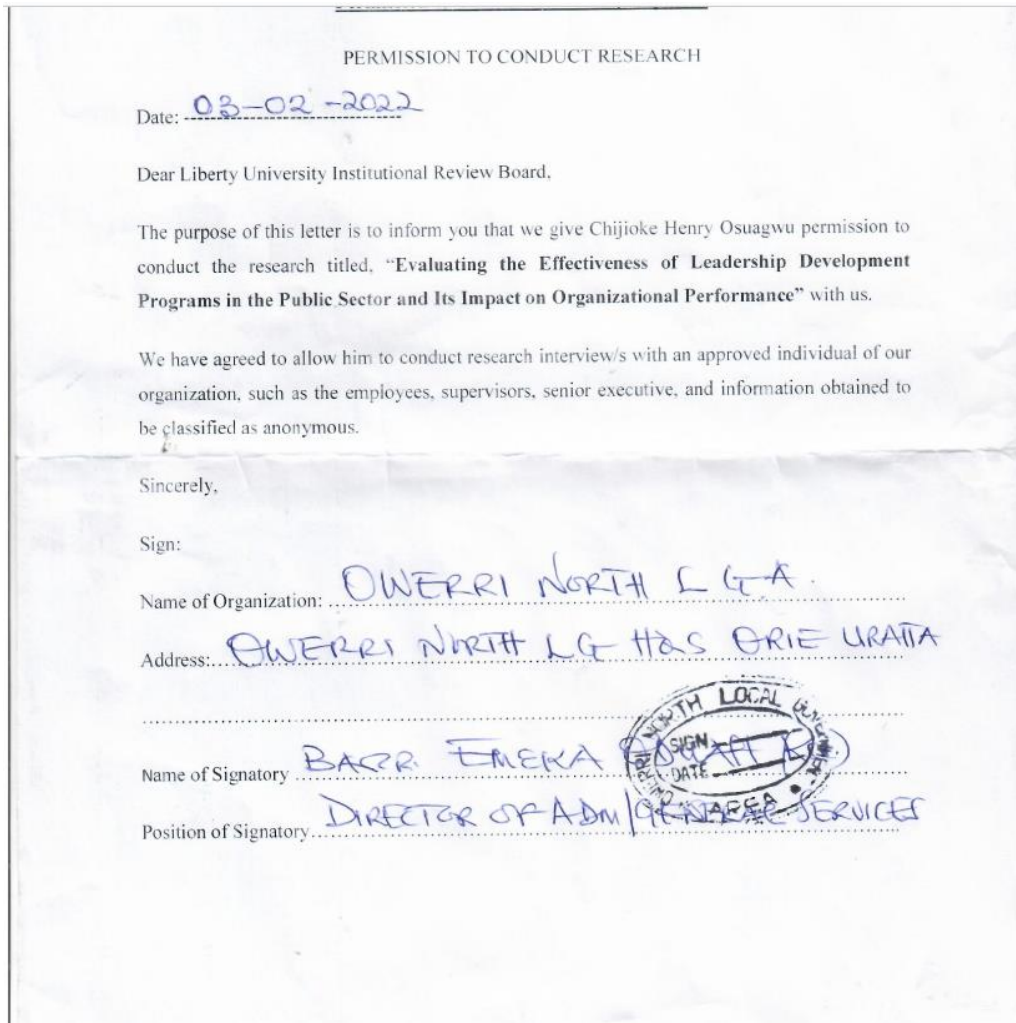 PERMISSION TO CONDUCT RESEARCH
Date: 03-02-2022
Dear Liberty University Institutional Review Board,
The purpose of this letter is to inform you that we give Chijioke Henry Osuagwu permission to
conduct the research titled, “Evaluating the Effectiveness of Leadership Development
Programs in the Public Sector and Its Impact on Organizational Performance” with us.
We have agreed to allow him to conduct research interview/s with an approved individual of our
organization, such as the employees, supervisors, senior executive, and information obtained to
be classified as anonymous.
Sincerely,
Sign:
Name of Organization: OWERRI NORTH L G A.
Address: OWERRI NORTH LG HQS ORIE URATTA
Name of Signatory BARR. EMEKA
Position of Signatory DIRECTOR OF ADM/GENERAL SERVICES
OWERRI NORTH LOCAL GOVERNMENT
SIGN
DATE
AREA